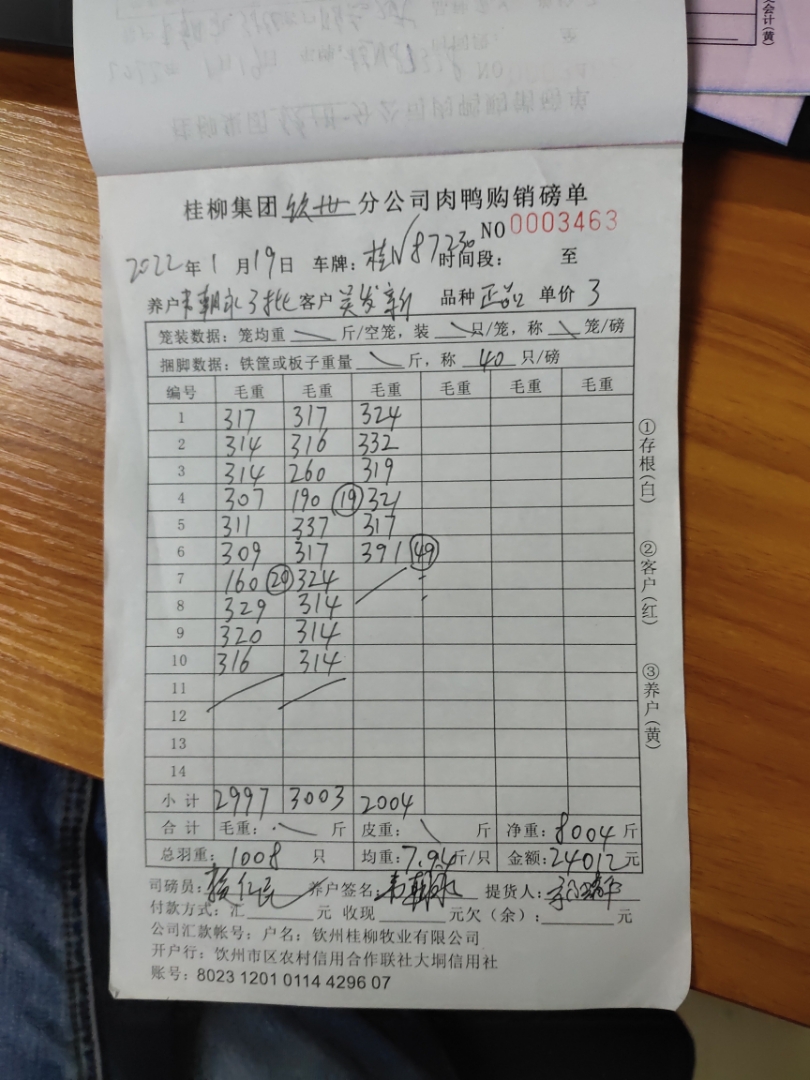 桂柳集团钦州分公司肉鸭购销磅单
NO 0003463
2022年1月19日 车牌：桂N87230 时间段： 至
养户韦朝永3批 客户吴发新 品种正品 单价3
笼装数据：笼均重 斤/空笼，装 只/笼，称 笼/磅
捆脚数据：铁筐或板子重量 斤，称 40 只/磅
编号 毛重 毛重 毛重 毛重 毛重 毛重
1 317 317 324
2 314 316 332
3 314 260 319
4 307 190 ⑲ 321
5 311 337 317
6 309 317 391 ㊾
7 160 ⑳ 324
8 329 314
9 320 314
10 316 314
11
12
13
14
小计 2997 3003 2004
合计 毛重： 斤 皮重： 斤 净重：8004斤
总羽重：1008 只 均重：7.94斤/只 金额：24012元
司磅员： 养户签名：韦朝永 提货人：
付款方式：汇 元 收现 元欠（余）： 元
公司汇款帐号：户名：钦州桂柳牧业有限公司
开户行：饮州市区农村信用合作联社大垌信用社
账号：8023 1201 0114 4296 07
①存根(白)
②客户(红)
③养户(黄)
会计(黄)